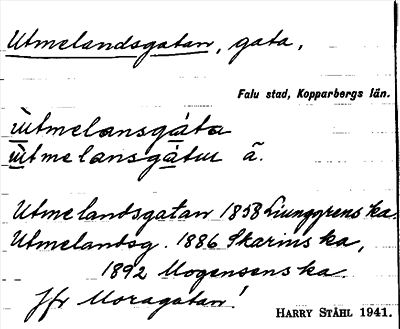 Utmelandsgatan, gata,
Falu stad, Kopparbergs län.
ùtmelansgáta
ùtmelansgátu ã.
Utmelandsgatan 1858 Ljunggrens ka.
Utmelandsg. 1886 Skarins ka,
1892 Mogensens ka.
Jfr Moragatan!
HARRY STÅHL 1941.